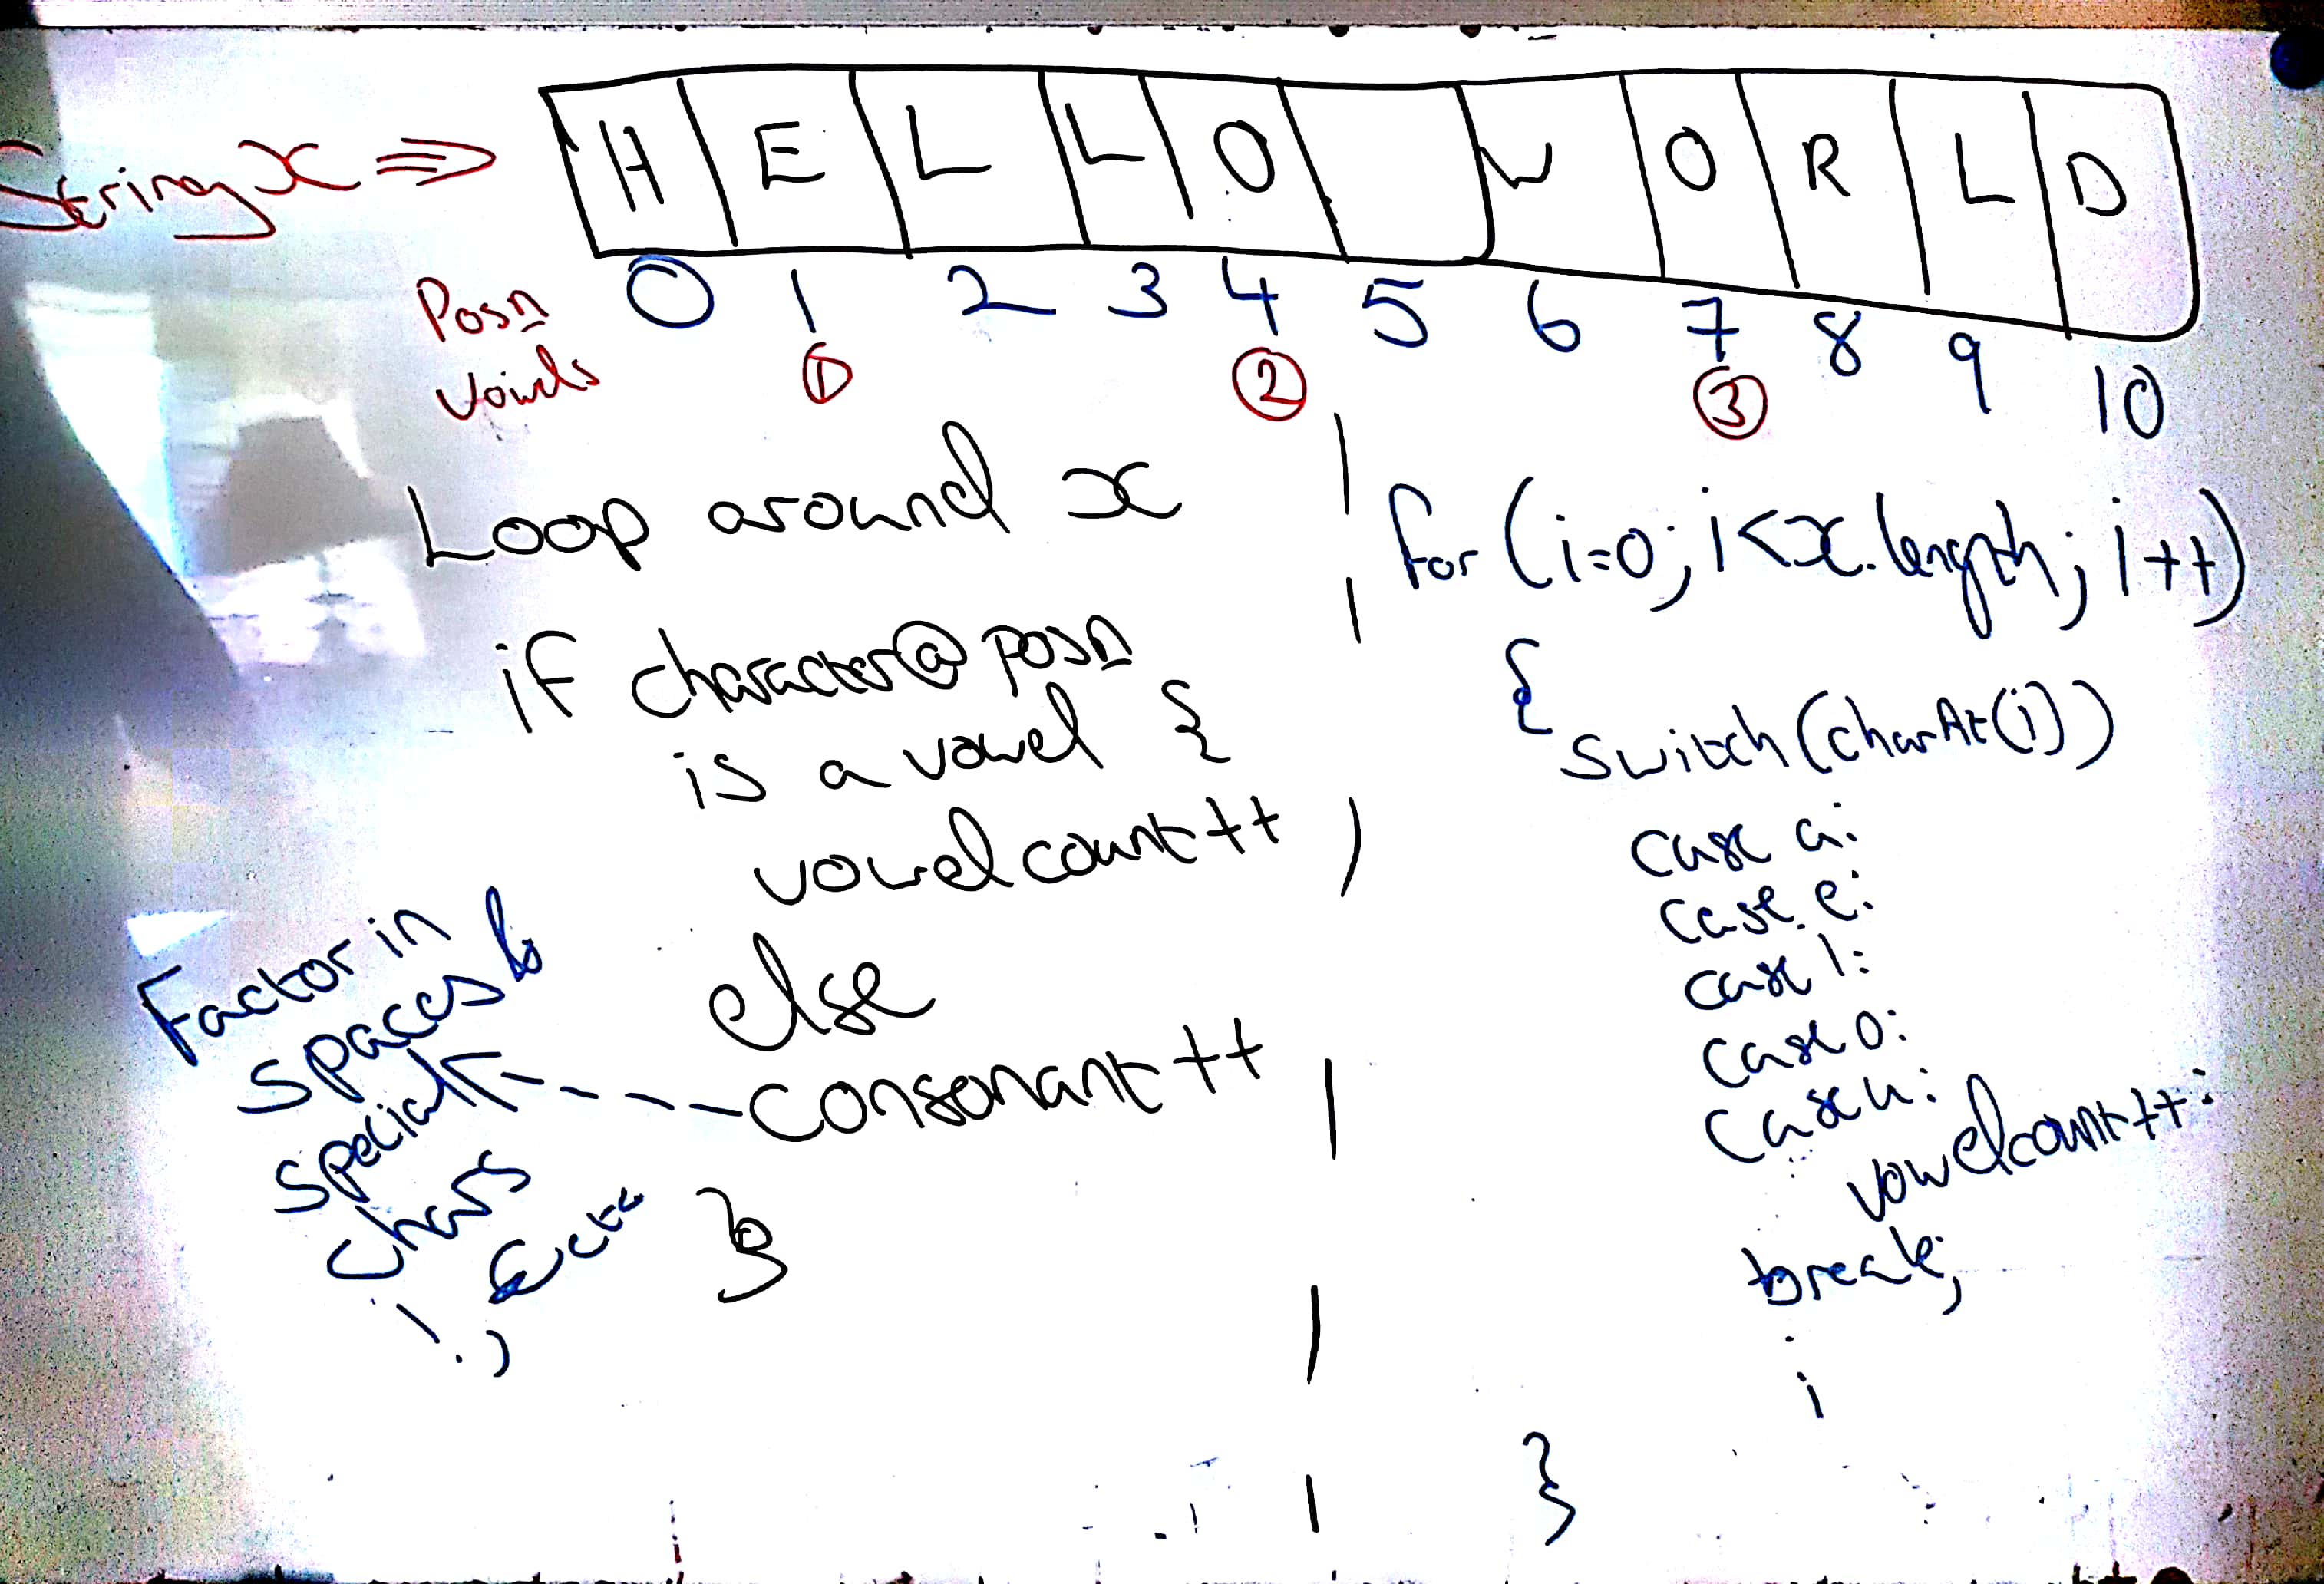 String x ⇒ H E L L O W O R L D
Posn 0 1 2 3 4 5 6 7 8 9 10
Vowels 1 2 3
Loop around x
if character@posn
is a vowel {
vowelcount++
else
consonant++
}
Factor in
spaces &
special
chars
! , &etc
.,
for (i=0; i<x.length; i++)
{
switch(charAt(i))
case a:
case e:
case i:
case o:
case u:
vowelcount++;
break;
}